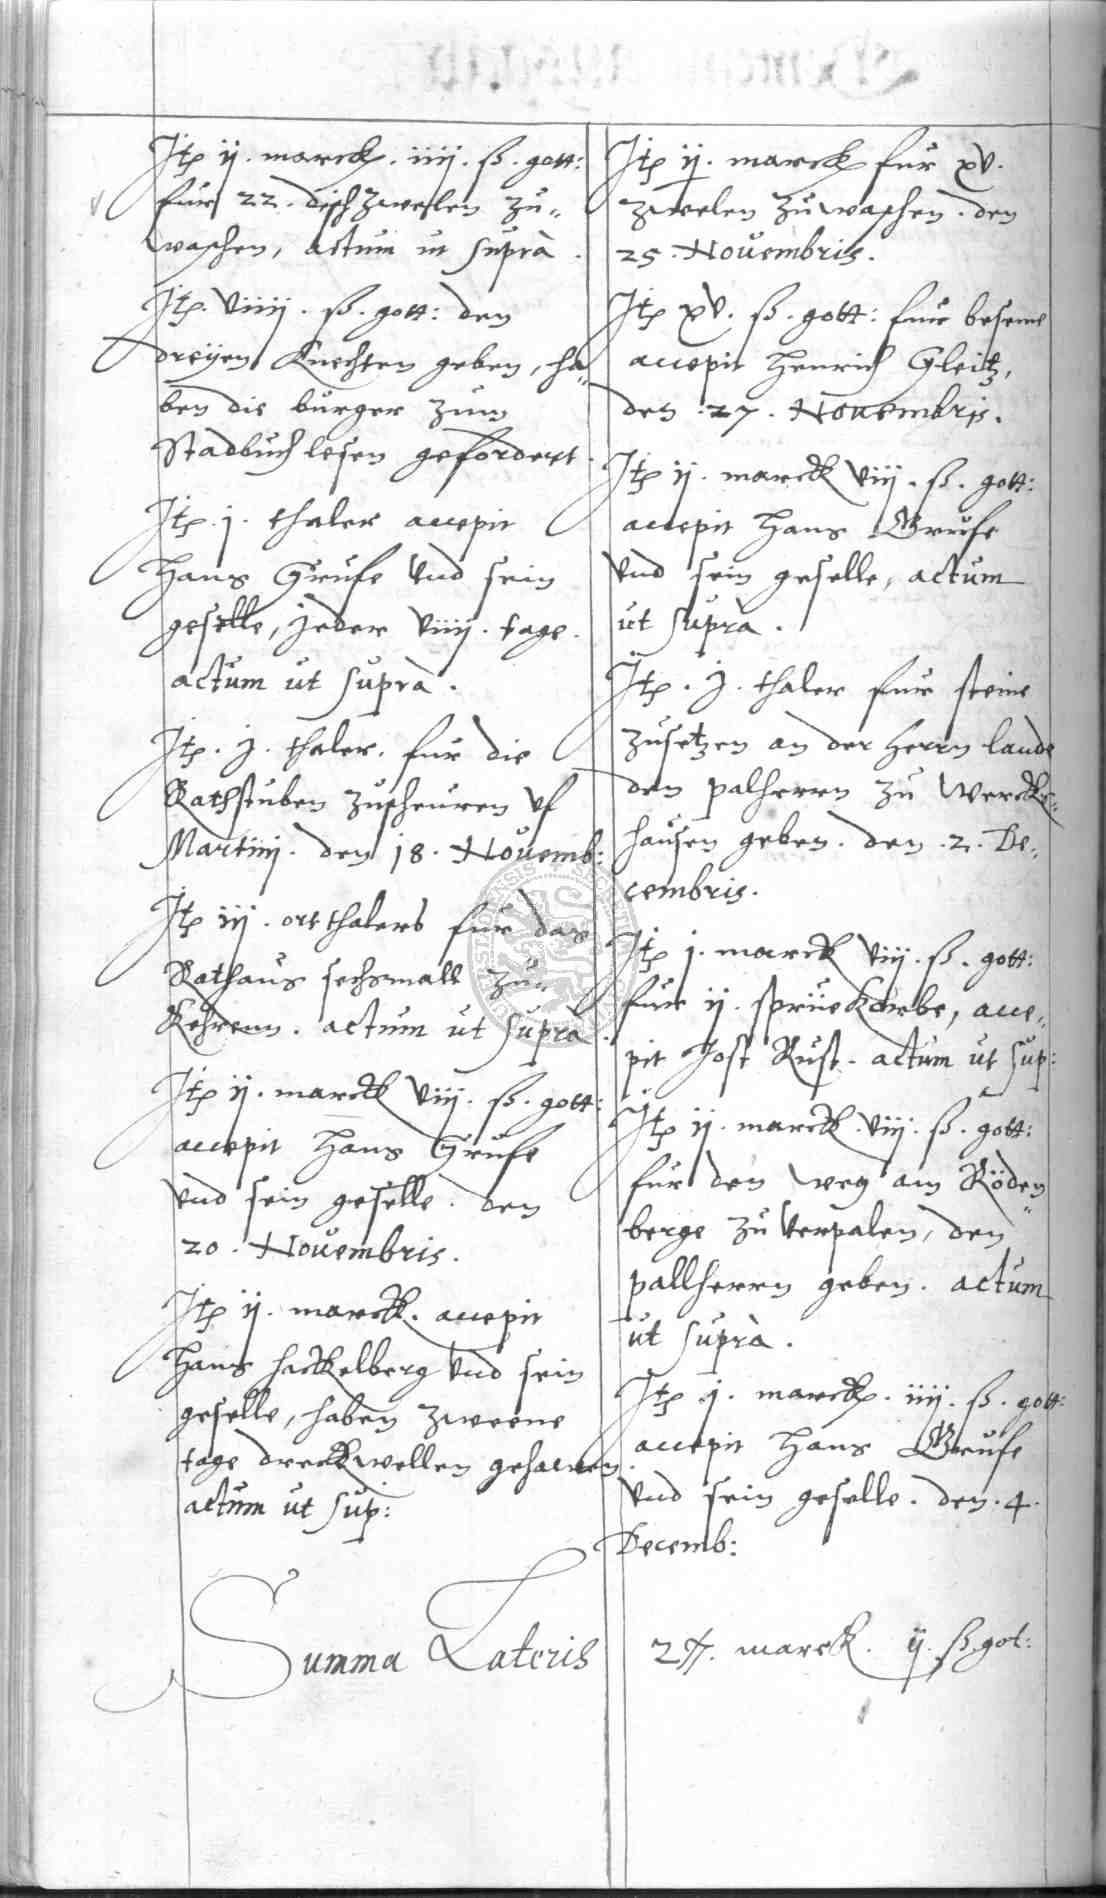 Itp ij. marck. iiij. ß. gott:
fur 22. dischzwelen zu„
waschen, actum ut suprà.
Itp. viiij. ß. gott: den
dreÿen Knechten geben, ha„
ben die burger zum
Stadbuch lesen gefordert.
Itp. j. thaler accepit
Hans Grufe vnd sein
geselle, Jeder viiij. tage.
actum ut suprà.
Itp. j. thaler. fur die
Rathstuben zuscheuren vf
Martinj. den 18. Nouemb:
Itp iij. ort thalers fur das
Rathaus sechsmall zu„
Kehrenn. actum ut suprà.
Itp ij. marck viij. ß. gott:
accepit Hans Grufe
vnd sein geselle. den
20. Nouembris.
Itp ij. marck. accepit
Hans hackelberg vnd sein
geselle, haben zweene
tage dreckwellen gehawen.
actum ut sup:
Itp ij. marck fur xv.
zwelen zuwaschen. den
25. Nouembris.
Itp xv. ß. gott: fur beseme
accepit Henrich Gleitz,
den 27. Nouembris.
Itp ij. marck viij. ß. gott:
accepit Hans Grufe
vnd sein geselle, actum
ut suprà.
Itp. j. thaler fur steine
zusetzen an der Herrn lande
den palherrn zu Wercks„
hausen geben. den 2. De„
cembris.
Itp j. marck viij. ß. gott:
fur ij. sprüekorbe, acce„
pit Jost Rust. actum ut sup:
Itp ij. marck. viij. ß. gott:
fur den weg am Röden„
berge zu verpalen, den
pallherrn geben. actum
ut suprà.
Itp j. marck. iiij. ß. gott:
accepit Hans Grufe
vnd sein geselle. den. 4.
Decemb:
Summa Lateris marck. ij. ß. got: